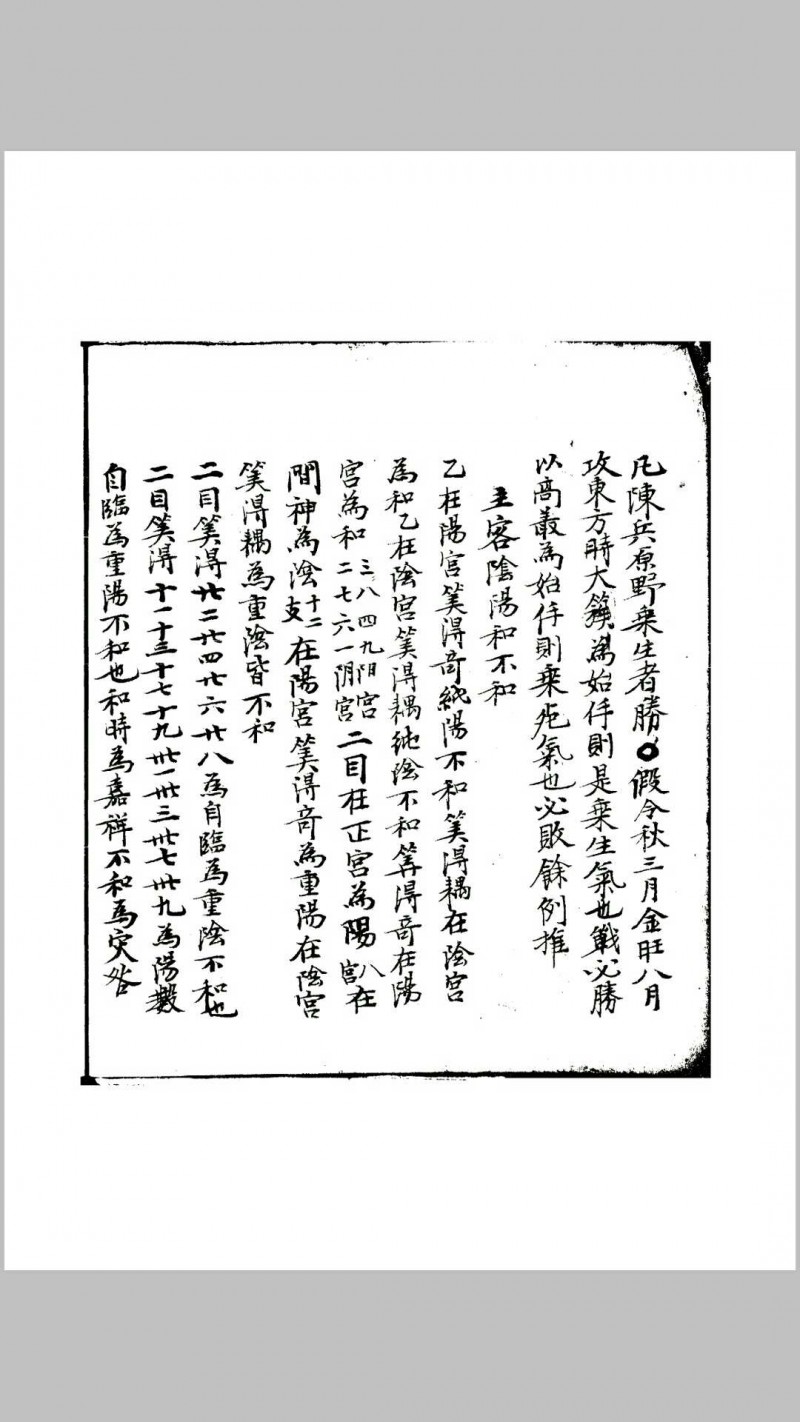 凡陳兵原野乗生者勝〇假令秋三月金旺八月
攻東方時大簇為始仵則是乗生氣也戰必勝
以高叢為始仵則乗死氣也必敗餘例推
主客陰陽和不和
乙在陽宮筭得竒純陽不和筭得耦在陰宮
為和乙在陰宮筭得耦純陰不和筭得竒在陽
宮為和三八四九門宮二七六一阴宮二目在正宮為陽八宮在
間神為陰十二支在陽宮筭得竒為重陽在陰宮
筭得耦為重陰皆不和
二目筭得廿二廿四廿六廿八為自臨為重陰不和也
二目筭得十一十三十七十九卅一卅三卅七卅九為陽數
自臨為重陽不和也和時為嘉祥不和為灾咎